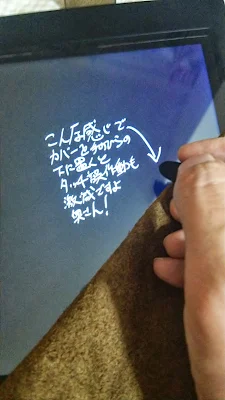 こんな感じで
カバーを手のひらの
下に置くと
タッチ誤作動も
激減ですよ
奥さん!